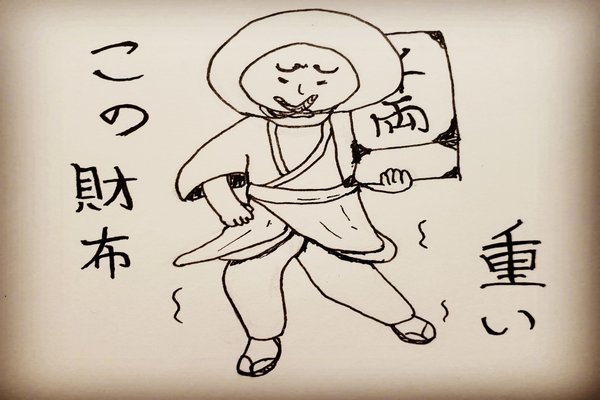 この財布
千両
重い